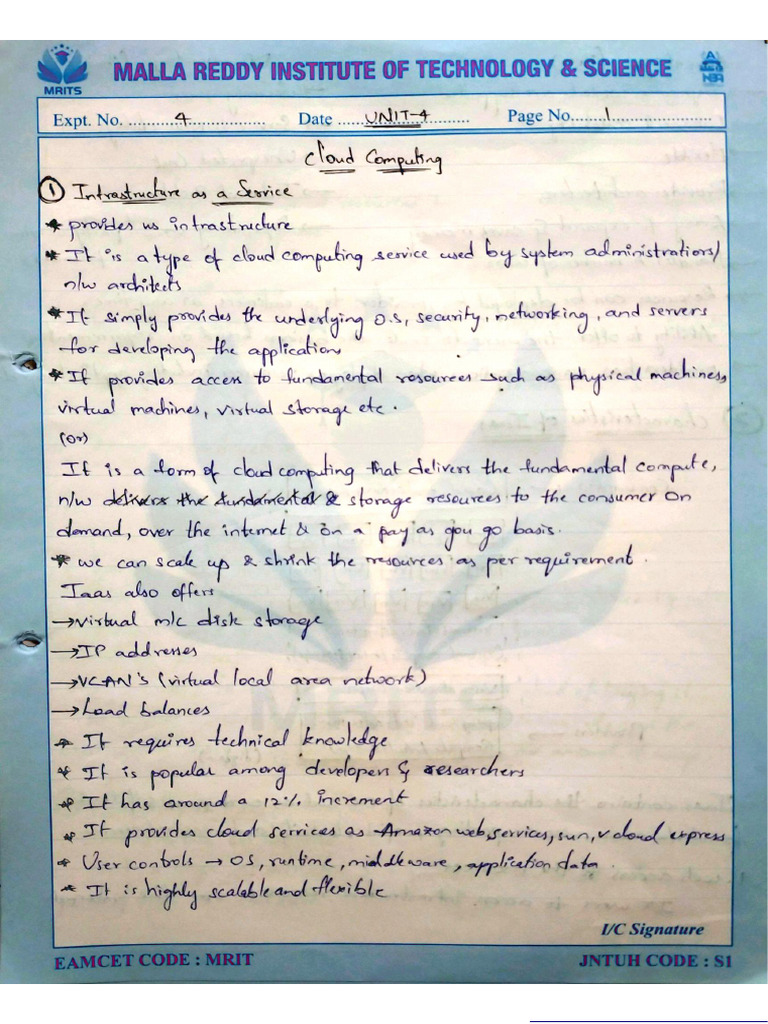 MALLA REDDY INSTITUTE OF TECHNOLOGY & SCIENCE
MRITS
NBA
Expt. No. ..........4................ Date ......UNIT-4......... Page No.......1....................
Cloud Computing
① Intrastructure as a Service
* provides us intrastructure
* It is a type of cloud computing service used by system administrations/
n/w architects
* It simply provides the underlying O.S, security, networking, and servers
for developing the applications
* It provides access to fundamental resources such as physical machines,
virtual machines, virtual storage etc.
(or)
It is a form of cloud computing that delivers the fundamental compute,
n/w delivers the fundamental & storage resources to the consumer on
demand, over the internet & on a pay as you go basis.
* we can scale up & shrink the resources as per requirement.
Iaas also offers
→ virtual m/c disk storage
→ IP addresses
→ VLAN's (virtual local area network)
→ Load balances
* It requires technical knowledge
* It is popular among developers & researchers
* It has around a 12% increment
* It provides cloud services as Amazon web, services, sun, v cloud express
* User controls → OS, runtime, middleware, application data.
* It is highly scalable and flexible
I/C Signature
EAMCET CODE : MRIT JNTUH CODE : S1
MRITS